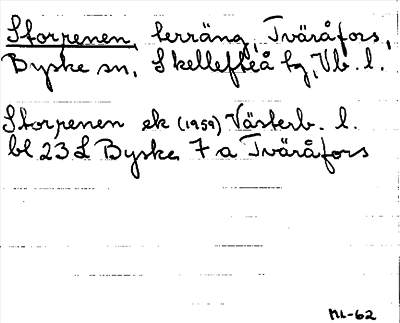 Storrenen, terräng, Tväråfors,
Byske sn, Skellefteå tg, Vb. l.
Storrenen ek (1959) Västerb. l.
bl 23 L Byske 7 a Tväråfors
ML-62